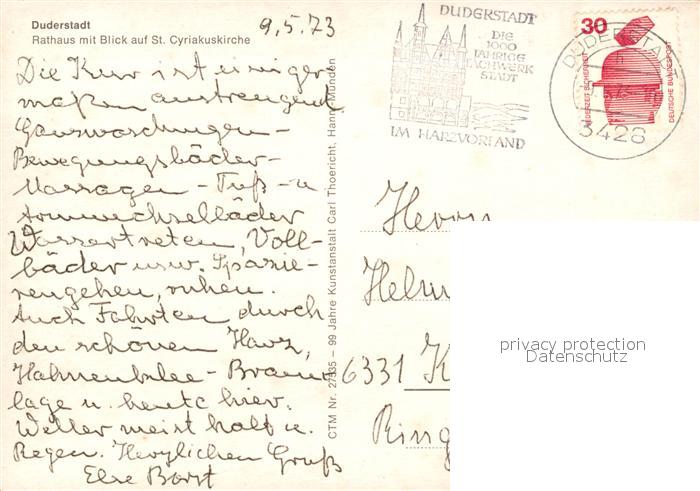 Duderstadt
Rathaus mit Blick auf St. Cyriakuskirche
9.5.73
Die Kur ist einiger
maßen anstrengend
Ganzwaschungen -
Bewegungsbäder -
Massagen - Fuß - u
Armwechselbäder
Wassertreten, Voll-
bäder usw. Spazie-
rengehen, ruhen.
Auch Fahrten durch
den schönen Harz,
Hahnenklee - Braun
lage u. heute hier.
Wetter meist kalt u.
Regen. Herzlichen Gruß
Else Borst
CTM Nr. 27535 – 99 Jahre Kunstanstalt Carl Thoericht, Hann.-Münden
DUDERSTADT
DIE
1000
JÄHRIGE
FACHWERK
STADT
IM HARZVORLAND
DUDERSTADT
3428
30
JEDERZEIT SICHERHEIT
DEUTSCHE BUNDESPOST
Herrn
Helm
6331 K
Ring
privacy protection
Datenschutz